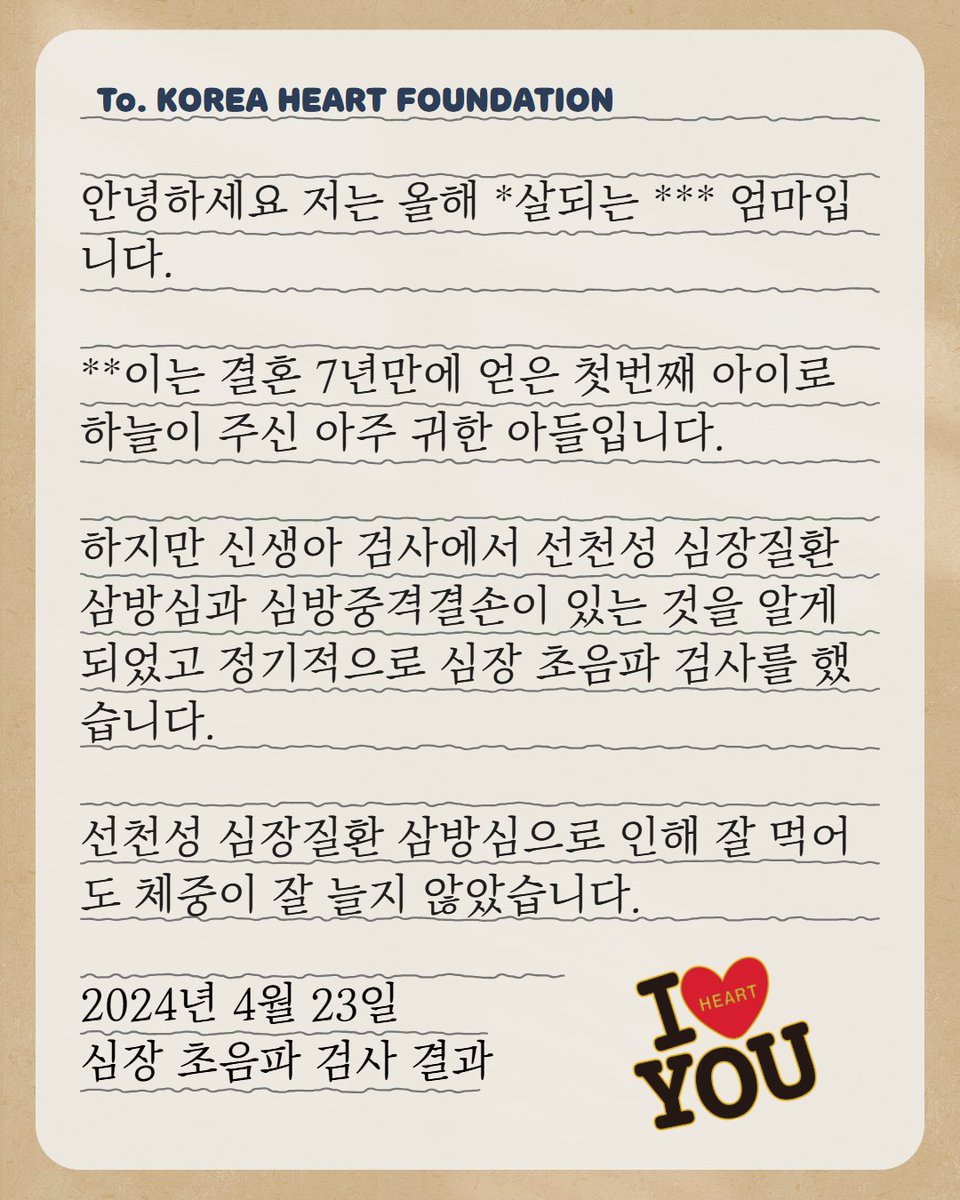 To. KOREA HEART FOUNDATION
안녕하세요 저는 올해 *살되는 *** 엄마입
니다.
**이는 결혼 7년만에 얻은 첫번째 아이로
하늘이 주신 아주 귀한 아들입니다.
하지만 신생아 검사에서 선천성 심장질환
삼방심과 심방중격결손이 있는 것을 알게
되었고 정기적으로 심장 초음파 검사를 했
습니다.
선천성 심장질환 삼방심으로 인해 잘 먹어
도 체중이 잘 늘지 않았습니다.
2024년 4월 23일
심장 초음파 검사 결과
I HEART
YOU